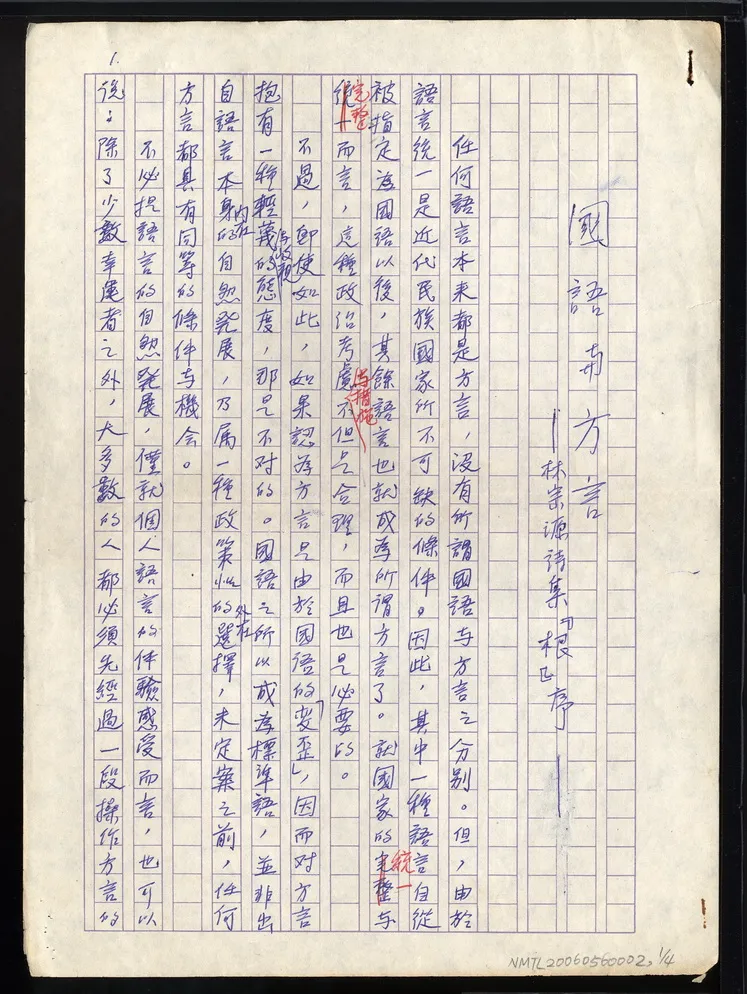 1.
國語與方言
—林宗源詩集『根』序—
任何語言本來都是方言,沒有所謂國語与方言之分别。但,由於
語言统一是近代民族國家所不可缺的條件。因此,其中一種語言自從
被指定為國語以後,其餘語言也就成為所謂方言了。就國家的統一与
完整而言,這種政治考慮与措施不但是合理,而且也是必要的。
不過,即使如此,如果認為方言是由於國語的「変歪」,因而对方言
抱有一種輕蔑与歧視的態度,那是不对的。國語之所以成為標準語,並非出
自語言本身内在的自然発展,乃属一種政策性的外在選擇,未定案之前,任何
方言都具有同等的條件与機会。
不必提語言的自然発展,僅就個人語言的体驗感受而言,也可以
說:除了少數幸運者之外,大多數的人都必須先經過一段操作方言的
NMTL20060560002, 1/4